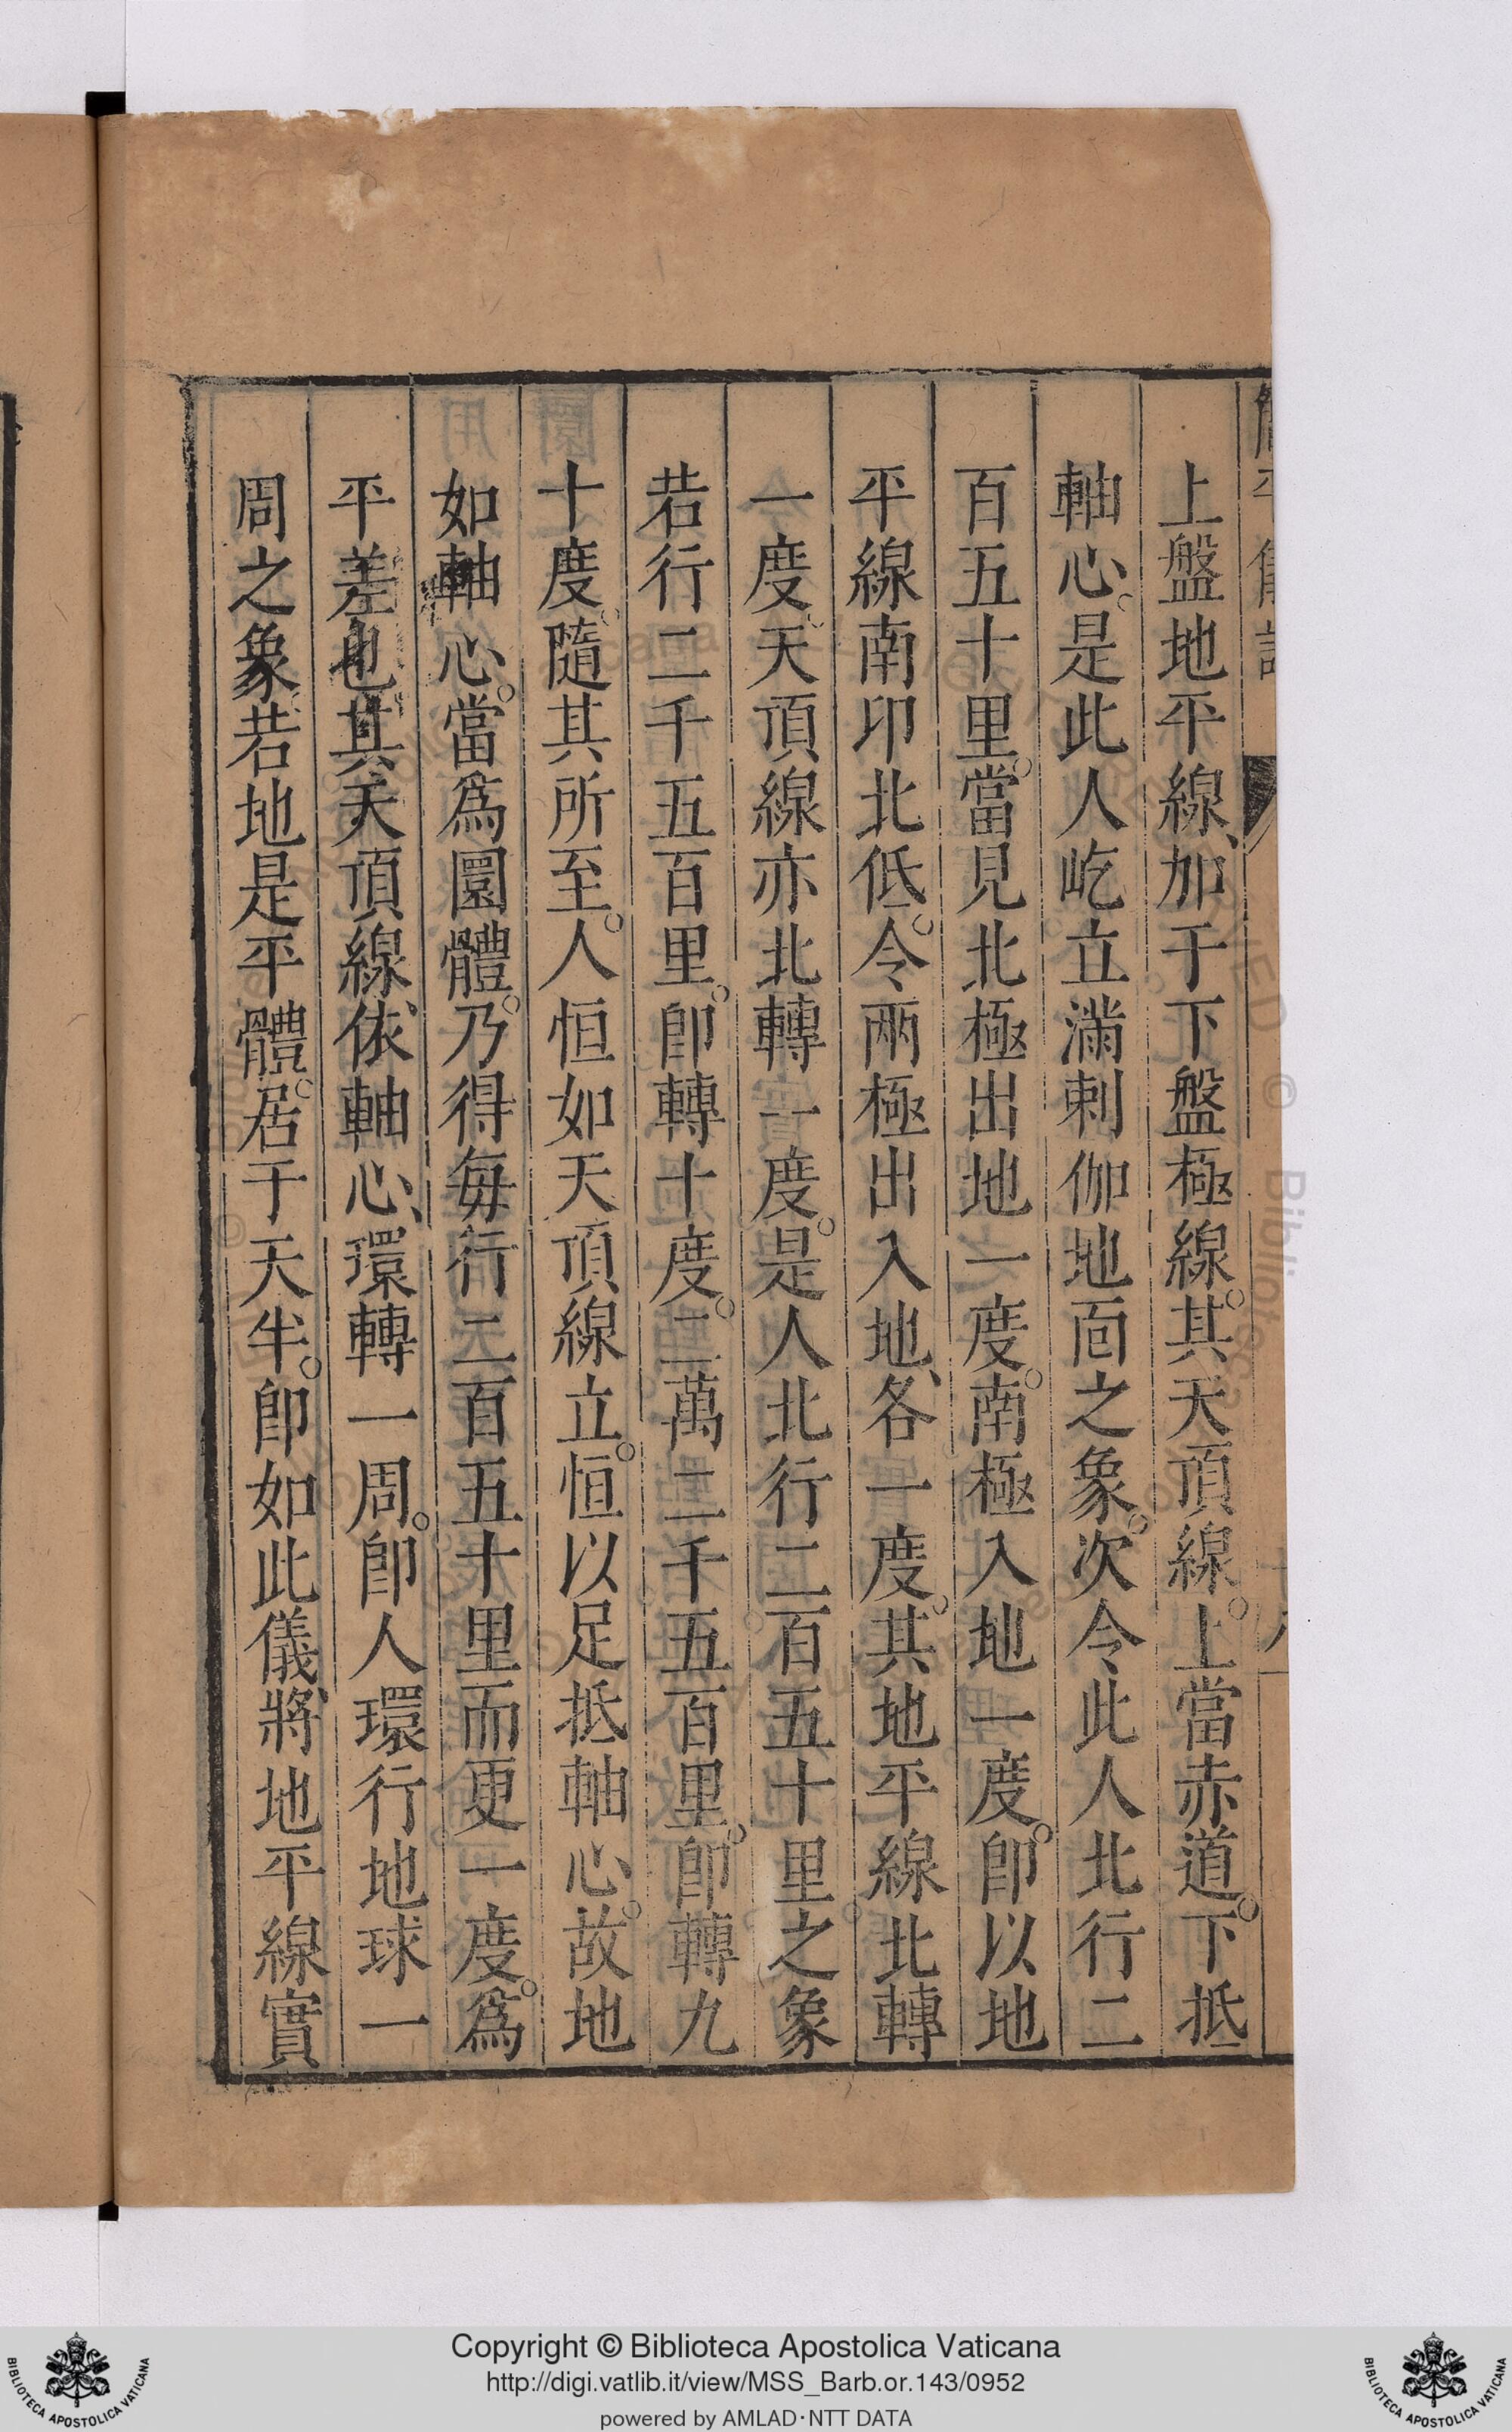 上盤地平線、加于下盤極線。其天頂線。上當赤道。下抵
軸心。是此人屹立滿剌伽地面之象。次令此人北行二
百五十里。當見北極出地一度。南極入地一度。卽以地
平線南卬北低。令兩極出入地、各一度。其地平線北轉
一度。天頂線亦北轉一度。是人北行二百五十里之象
若行二千五百里。卽轉十度。二萬二千五百里。卽轉九
十度。隨其所至。人恒如天頂線立。恒以足抵軸心。故地
如軸心。當爲圜體。乃得每行二百五十里而更一度。爲
平差也。其天頂線、依軸心、環轉一周。卽人環行地球一
周之象。若地是平體。居于天半。卽如此儀、將地平線實
Copyright © Biblioteca Apostolica Vaticana
http://digi.vatlib.it/view/MSS_Barb.or.143/0952
powered by AMLAD·NTT DATA
BIBLIOTECA APOSTOLICA VATICANA
BIBLIOTECA APOSTOLICA VATICANA